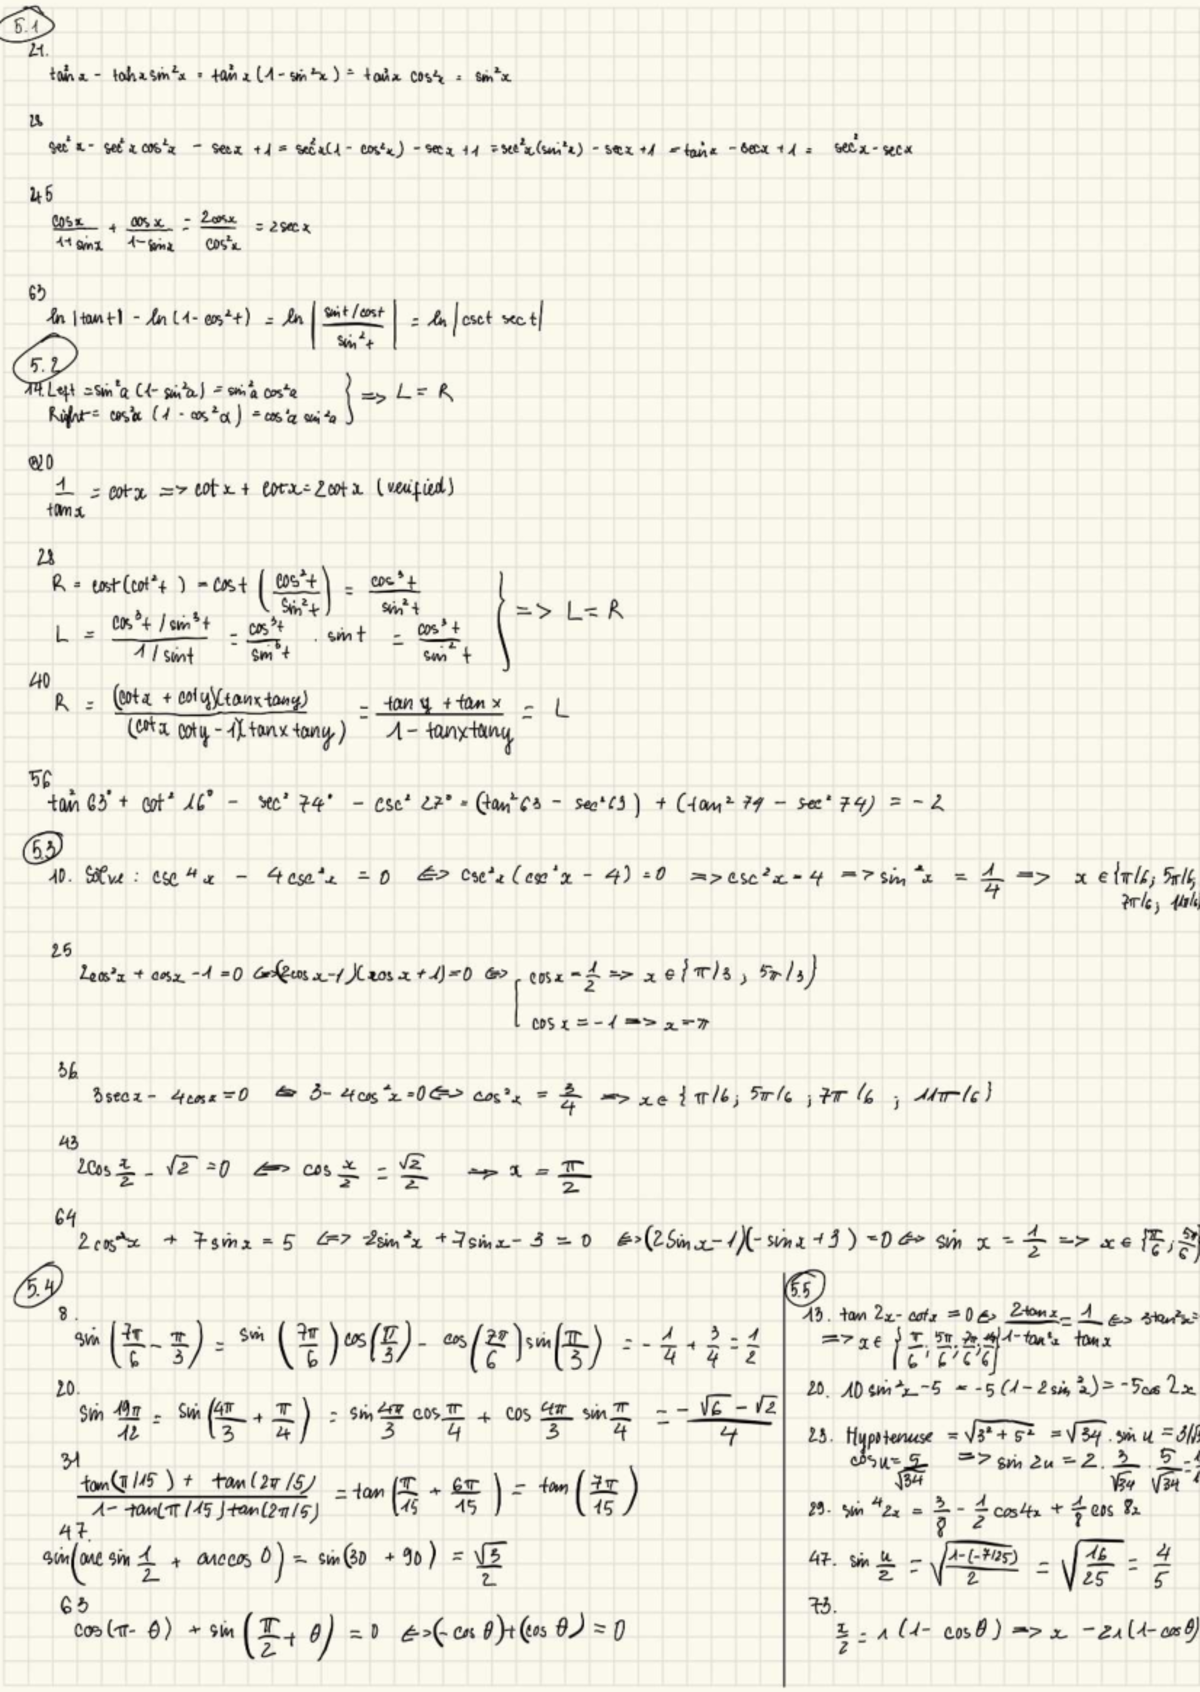 5.1
21.
tan²x - tan²x sin²x = tan²x (1-sin²x) = tan²x cos²x = sin²x
28
sec²x - sec²x cos²x - secx +1 = sec²x(1 - cos²x) - secx +1 = sec²x(sin²x) - secx +1 = tan²x - secx +1 = sec²x - secx
45
cosx/(1+sinx) + cosx/(1-sinx) = 2cosx/cos²x = 2secx
63
ln |tant| - ln (1-cos²t) = ln |(sint/cost)/sin²t| = ln |csct sect|
5.2
14. Left = sin²α (1-sin²α) = sin²α cos²α } => L = R
Right = cos²α (1 - cos²α) = cos²α sin²α
20
1/tanx = cotx => cotx + cotx = 2cotx (verified)
28
R = cost(cot²t) = cost (cos²t/sin²t) = cos³t/sin²t } => L = R
L = (cos³t/sin³t)/(1/sint) = cos³t/sin³t . sint = cos³t/sin²t
40
R = (cotx + coty)(tanxtany)/(cotx coty - 1)(tanxtany) = (tany + tanx)/(1 - tanxtany) = L
56
tan²63° + cot²16° - sec²74° - csc²27° = (tan²63 - sec²63) + (tan²74 - sec²74) = -2
5.3
10. Solve: csc⁴x - 4csc²x = 0 <=> csc²x (csc²x - 4) = 0 => csc²x = 4 => sin²x = 1/4 => x ∈ {π/6; 5π/6;
7π/6; 11π/6
25
2cos²x + cosx -1 = 0 <=> (2cosx-1)(cosx+1)=0 <=> [ cosx = 1/2 => x ∈ {π/3, 5π/3}
cosx = -1 => x = π
36
3secx - 4cosx = 0 <=> 3 - 4cos²x = 0 <=> cos²x = 3/4 => x ∈ {π/6; 5π/6; 7π/6; 11π/6}
43
2cos x/2 - √2 = 0 <=> cos x/2 = √2/2 => x = π/2
64
2cos²x + 7sinx = 5 <=> -2sin²x + 7sinx - 3 = 0 <=> (2sinx-1)(-sinx+3) = 0 <=> sin x = 1/2 => x ∈ {π/6; 5π/6}
5.4
8.
sin (7π/6 - π/3) = sin (7π/6) cos(π/3) - cos(7π/6) sin(π/3) = -1/4 + 3/4 = 1/2
20.
sin 19π/12 = sin(4π/3 + π/4) = sin 4π/3 cos π/4 + cos 4π/3 sin π/4 = (-√6 - √2)/4
31
(tan(π/15) + tan(2π/5))/(1 - tan(π/15)tan(2π/5)) = tan(π/15 + 6π/15) = tan(7π/15)
47.
sin(arcsin 1/2 + arccos 0) = sin(30 + 90) = √3/2
63
cos(π - θ) + sin(π/2 + θ) = 0 <=> (-cosθ) + (cosθ) = 0
5.5
13. tan 2x - cotx = 0 <=> 2tanx/(1-tan²x) = 1/tanx <=> 3tan²x =
=> x ∈ {π/6; 5π/6; 7π/6; 11π/6}
20. 10sin²x - 5 = -5 (1 - 2sin²x) = -5cos 2x
23. Hypotenuse = √(3² + 5²) = √34 . sin u = 3/√3
cosu = 5/√34 => sin 2u = 2 . 3/√34 . 5/√34 =
29. sin⁴2x = 3/8 - 1/2 cos4x + 1/8 cos 8x
47. sin u/2 = √((1-(-7/25))/2) = √(16/25) = 4/5
73.
x/2 = r (1 - cosθ) => x = 2r(1-cosθ)